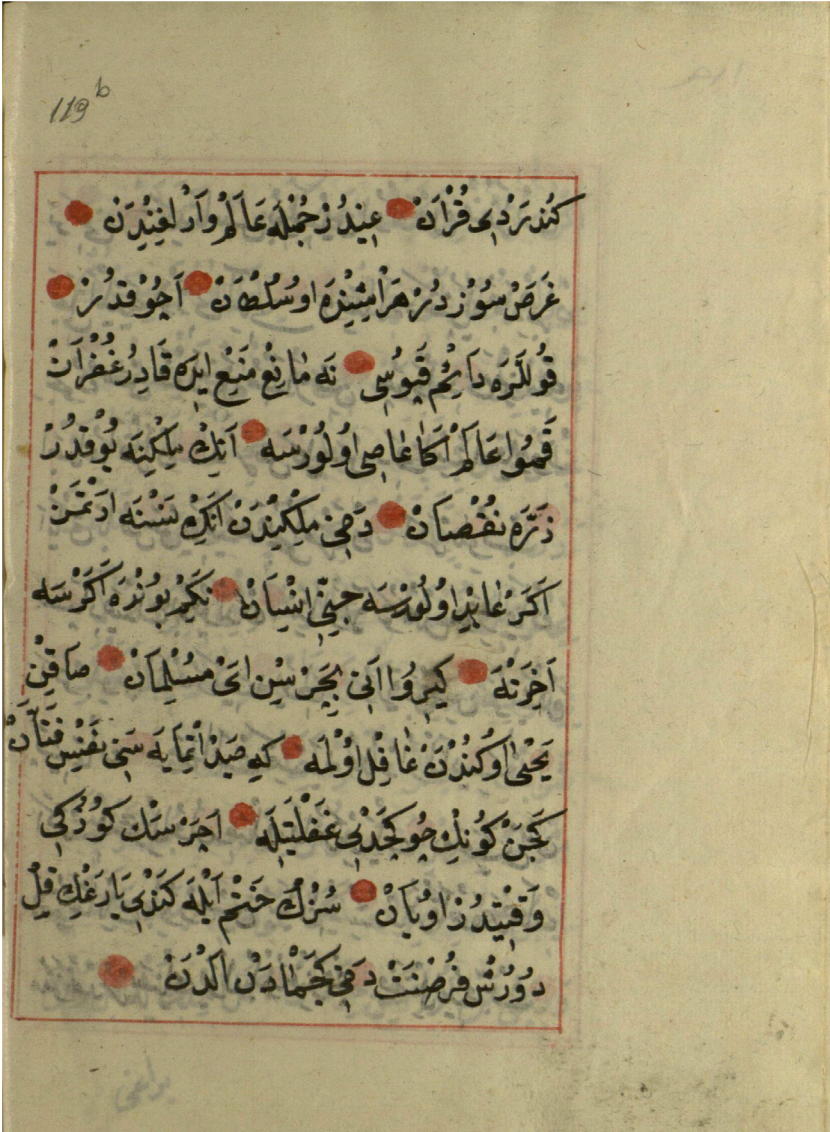 119b
كُنْدَرْدِى قُرْاٰنْ ● عِينْدُرْ جُمْلَه عَالَمْ وَارْلِغِنْدَنْ ●
غَرَضْ سُوزْدُرْ هَرْ اِيشِيْنْدَه اوُسُلْطَانْ ● آچُوْقدُرْ ●
قُوللَرَه دَائِمْ قَپُوسِى ● نَه مَانِعْ مَنِعْ ايدَه قَادِرْ غُفْرَانْ
قَمُوا عَالَمْ اَكَا عَاصِى اوُلُورْسَه ● اَنِكْ مِلْكِينَه يُوقدُرْ
ذَرَّه نُقْصَانْ ● دَخِى مِلْكِيْنْدَنْ اَنِكْ نَسْنَه ارْتْمَزْ
اَكَرْ عَابِدْ اوُلُورْسَه جِنّى اِنْسَانْ ● نَكِمْ بوُنْدَه اَكَرْسَه
آخِرَتْدَه ● كِيرُوا انِى بِچَرْسِنْ اىْ مُسُلْمَانْ ● صَاقِنْ
يَحْيٰى اوُكُنْدُنْ غَافِلْ اوُلْمَه ● كه صَيْدْ اتْمَايَه سَنِى نَفْسِ فَتَّانْ
كَچَنْ كُونِكْ چُو كَچْدِى غَفْلَتِيلَه ● آچَرْسَكْ كُوزُكِى
وَقْتِيدُرْ اوُيَانْ ● سُزْكْ خَتْمْ اَيْلَه كَنْدِى يَارَغِكْ قِلْ
دُورُشْ فُرْصَتْ دَخِى كَچْمَادَنْ الْدَنْ ●